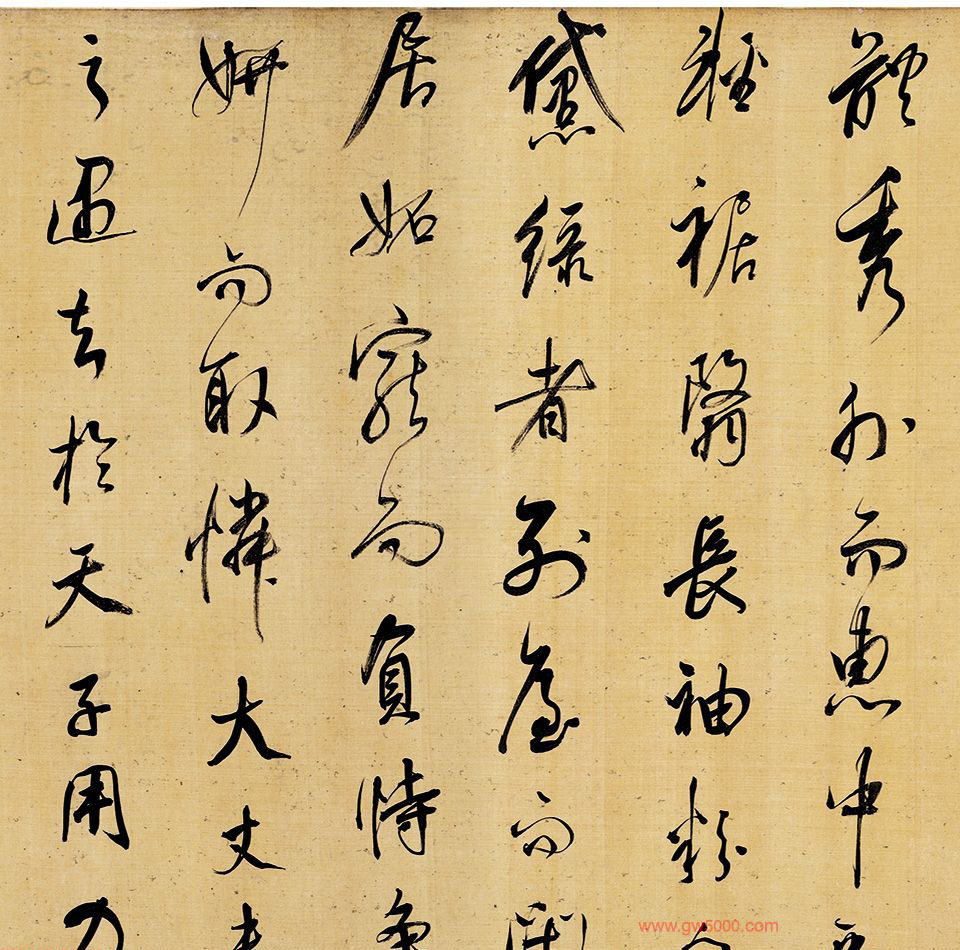 體秀外而惠中
輕裾翳長袖粉
黛綠者列屋而閒
居妬寵而負恃爭
妍而取憐大丈夫
之遇知於天子用力
www.gw5000.com